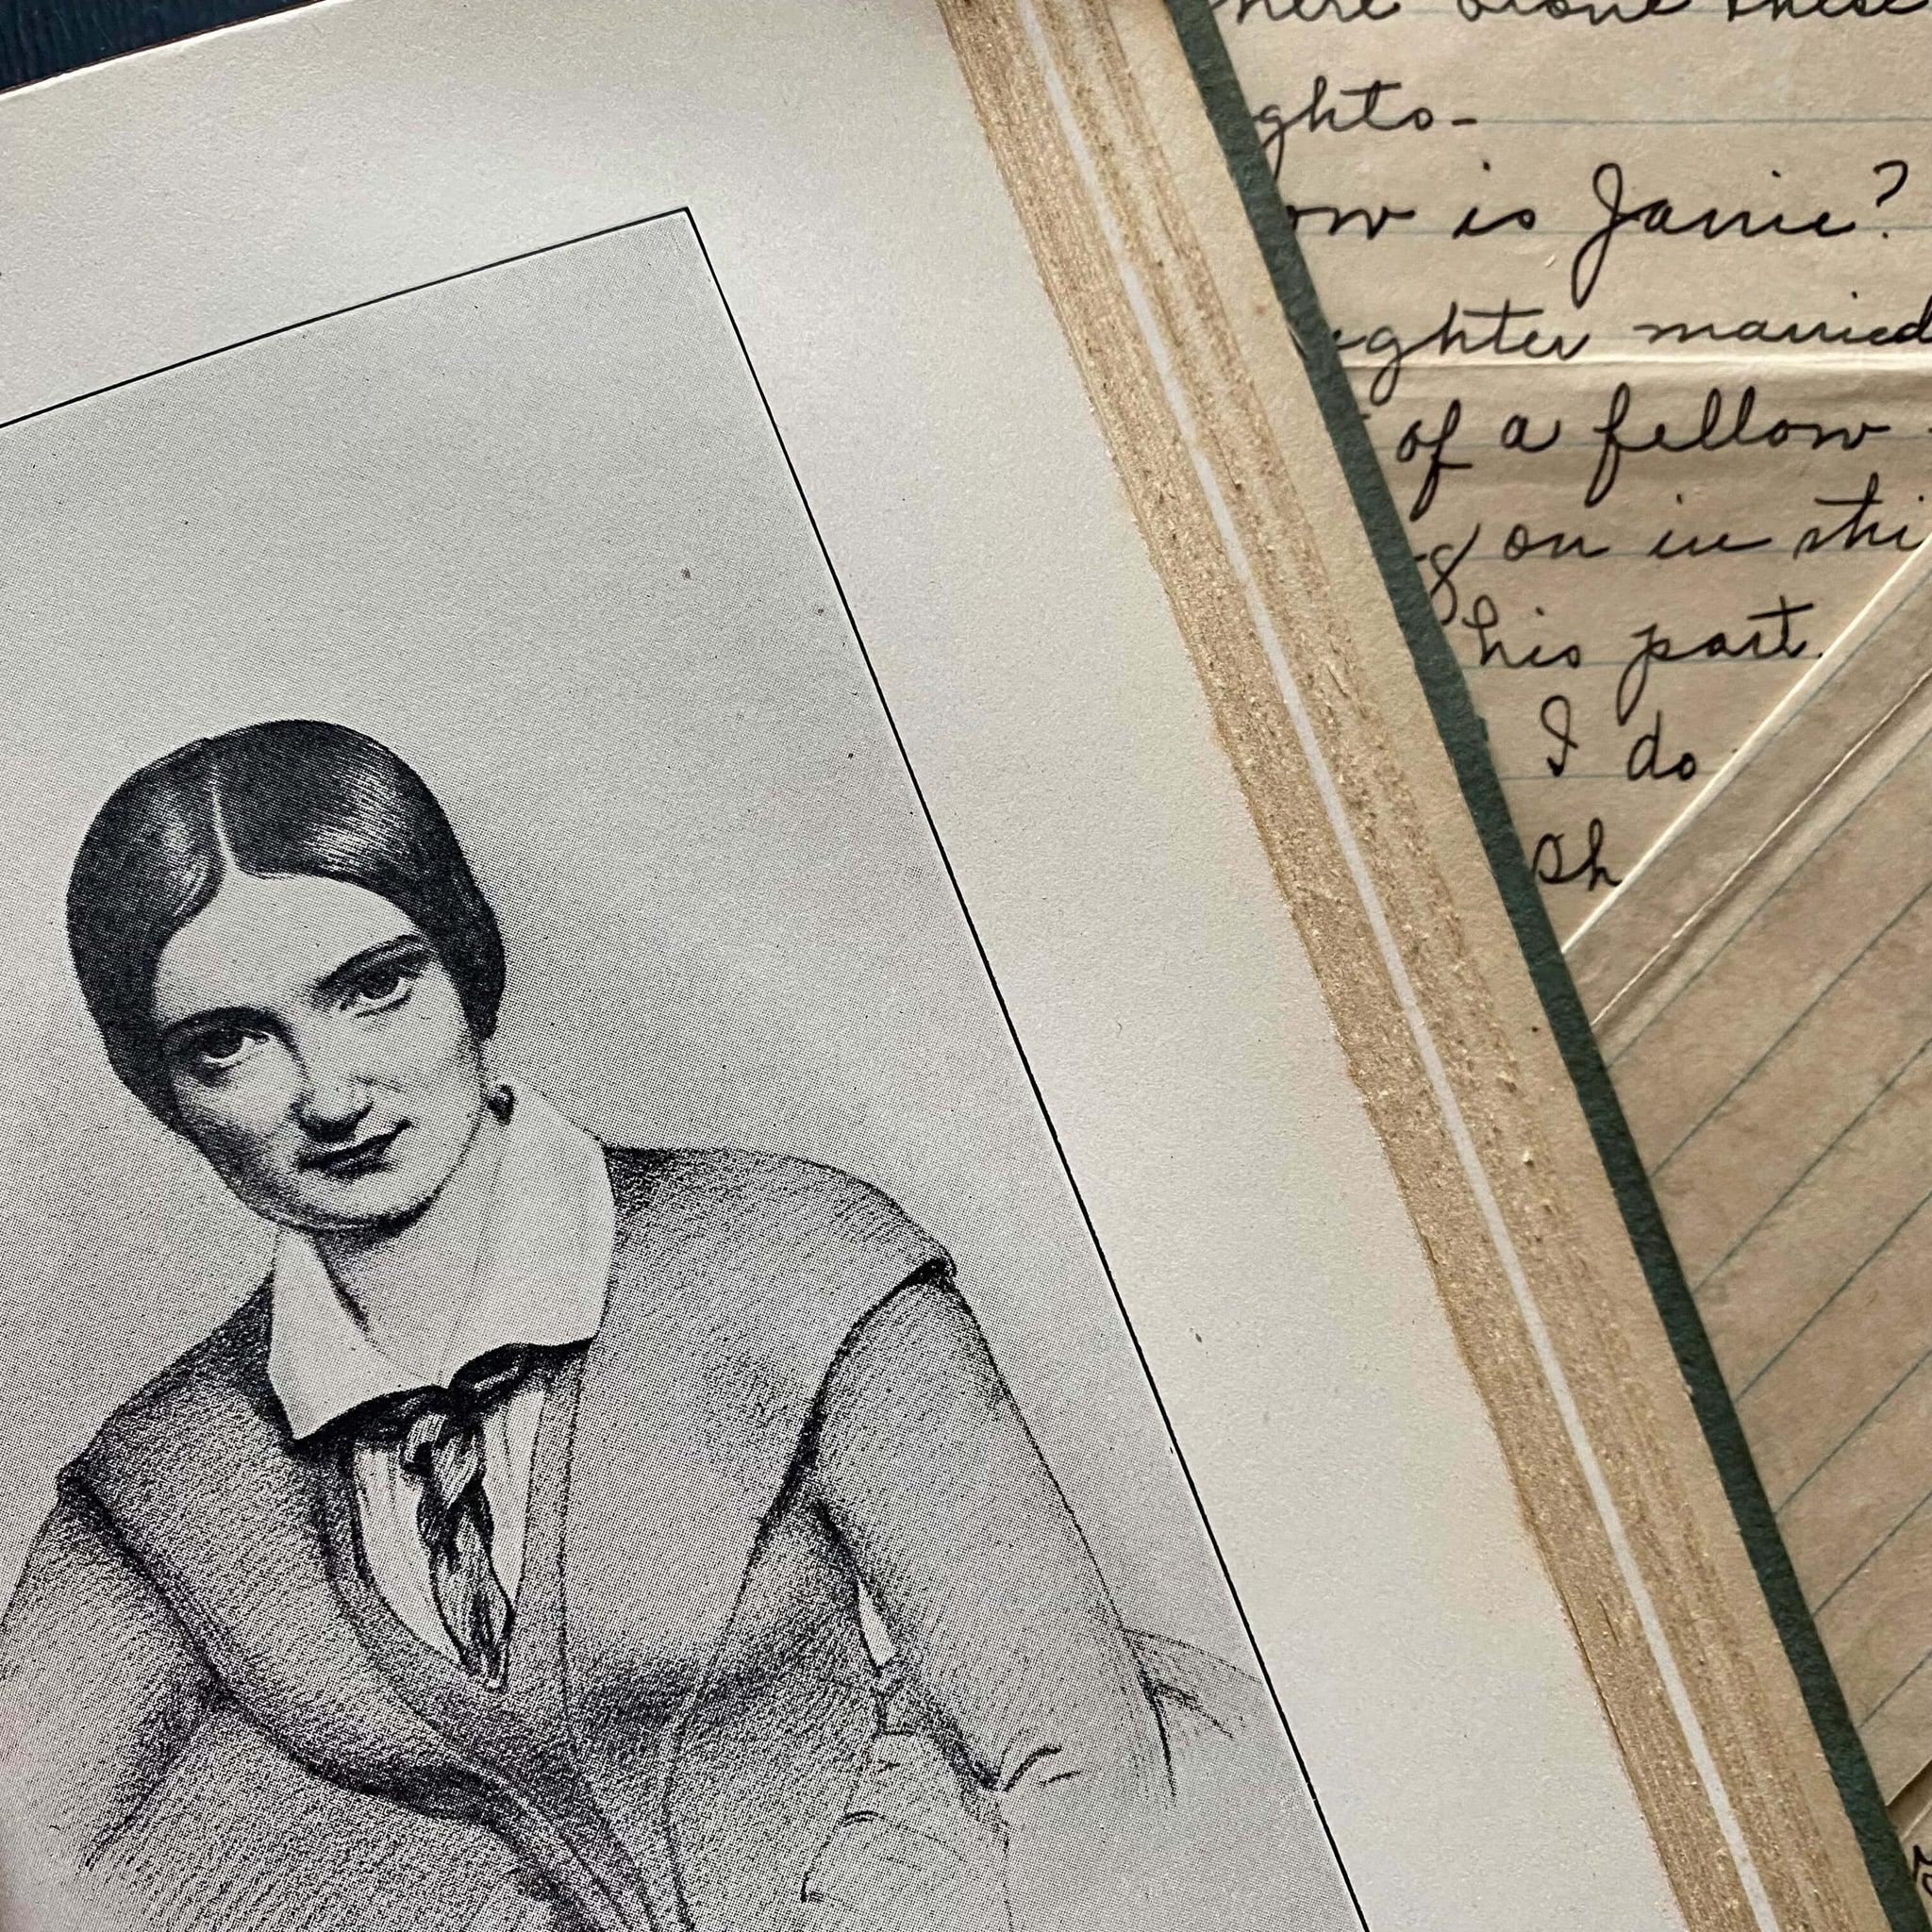 here alone these
ghts-
ow is Janie?
ghter married
of a fellow
g on in shi
his part.
I do
Sh